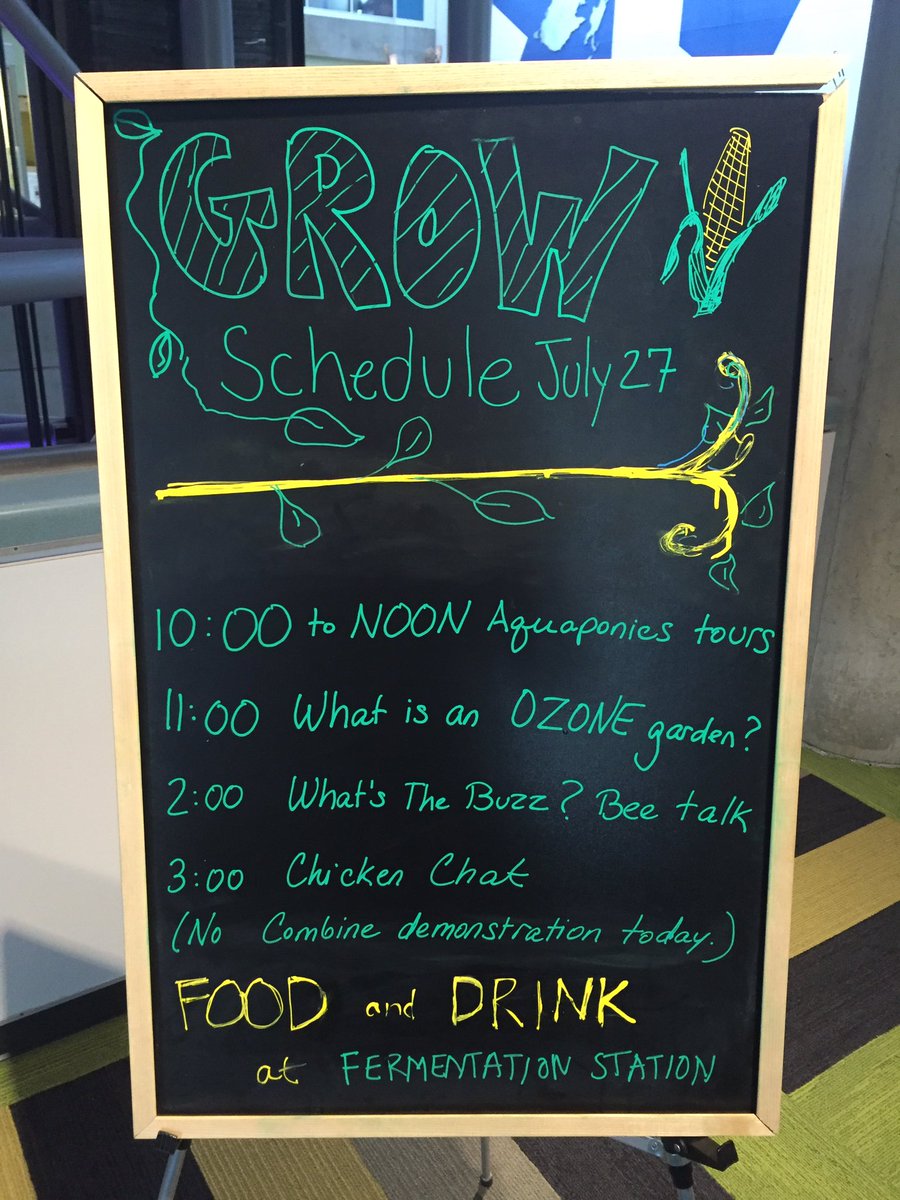 GROW
Schedule July 27
10:00 to NOON Aquaponics tours
11:00 What is an OZONE garden?
2:00 What's The Buzz? Bee talk
3:00 Chicken Chat
(No Combine demonstration today.)
FOOD and DRINK
at FERMENTATION STATION